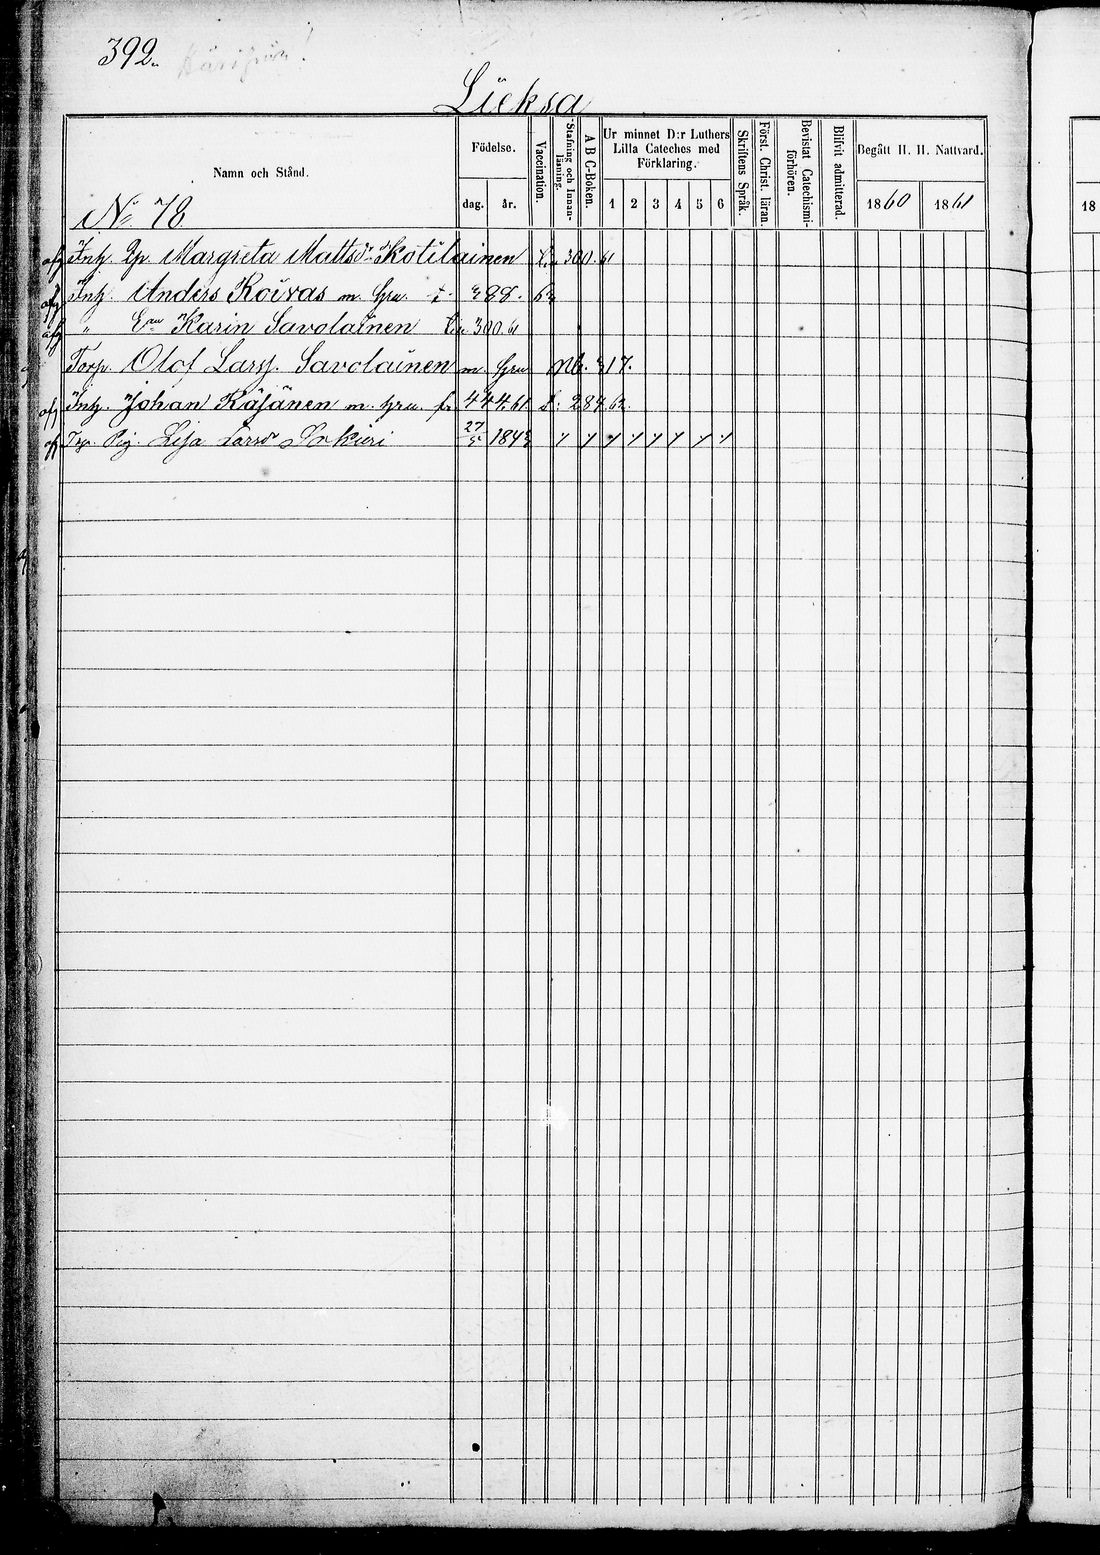 392.
Lieksa
Namn och Stånd.
Födelse.
dag. år.
Vaccination.
Stafning och Innanläsning.
A B C-Boken.
Ur minnet D:r Luthers Lilla Cateches med Förklaring.
1 2 3 4 5 6
Skriftens Språk.
Först. Christ. läran.
Bevistat Catechismiförhören.
Blifvit admitterad.
Begått H. H. Nattvard.
1860 1861
18
No 78
Inh. Margreta Mattsdr Kotilainen 300.61
Inh. Anders Koivas m. hru.
" Karin Savolainen 300.61
Torp. Olof Larss. Savolainen m. hru 317.
Inh. Johan Käjänen m. hru. 284.62.
Pig. Lisa Larsdr 27/5 1843